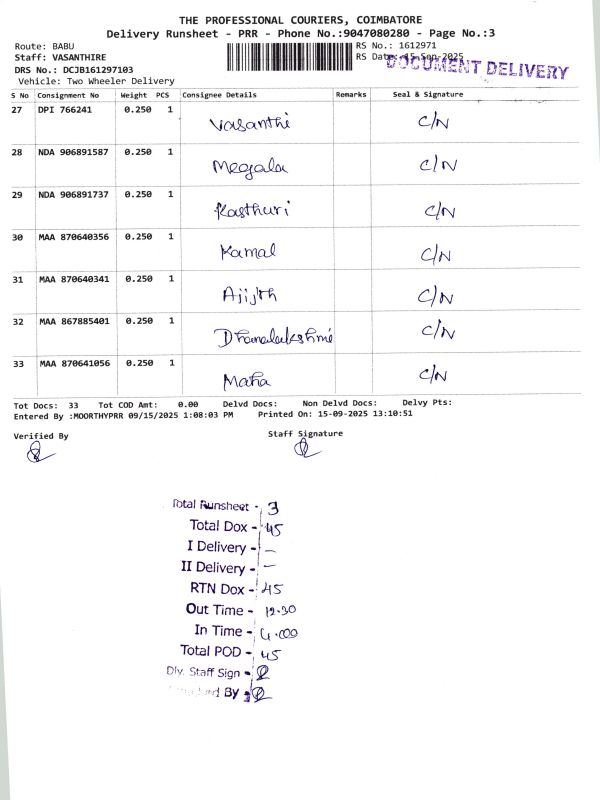 THE PROFESSIONAL COURIERS, COIMBATORE
Delivery Runsheet - PRR - Phone No.:9047080280 - Page No.:3
Route: BABU
RS No.: 1612971
Staff: VASANTHIRE
RS Date: 15-Sep-2025
DOCUMENT DELIVERY
DRS No.: DCJB161297103
Vehicle: Two Wheeler Delivery
S No Consignment No Weight PCS Consignee Details Remarks Seal & Signature
27 DPI 766241 0.250 1 Vasanthi C/N
28 NDA 906891587 0.250 1 Megala C/N
29 NDA 906891737 0.250 1 Kasthuri C/N
30 MAA 870640356 0.250 1 Kamal C/N
31 MAA 870640341 0.250 1 Ajijth C/N
32 MAA 867885401 0.250 1 Dhanalakshmi C/N
33 MAA 870641056 0.250 1 Maha C/N
Tot Docs: 33 Tot COD Amt: 0.00 Delvd Docs: Non Delvd Docs: Delvy Pts:
Entered By :MOORTHYPRR 09/15/2025 1:08:03 PM Printed On: 15-09-2025 13:10:51
Verified By Staff Signature
Total Runsheet - 3
Total Dox - 45
I Delivery - –
II Delivery - –
RTN Dox - 45
Out Time - 12.30
In Time - 4.000
Total POD - 45
Dly. Staff Sign -
By -